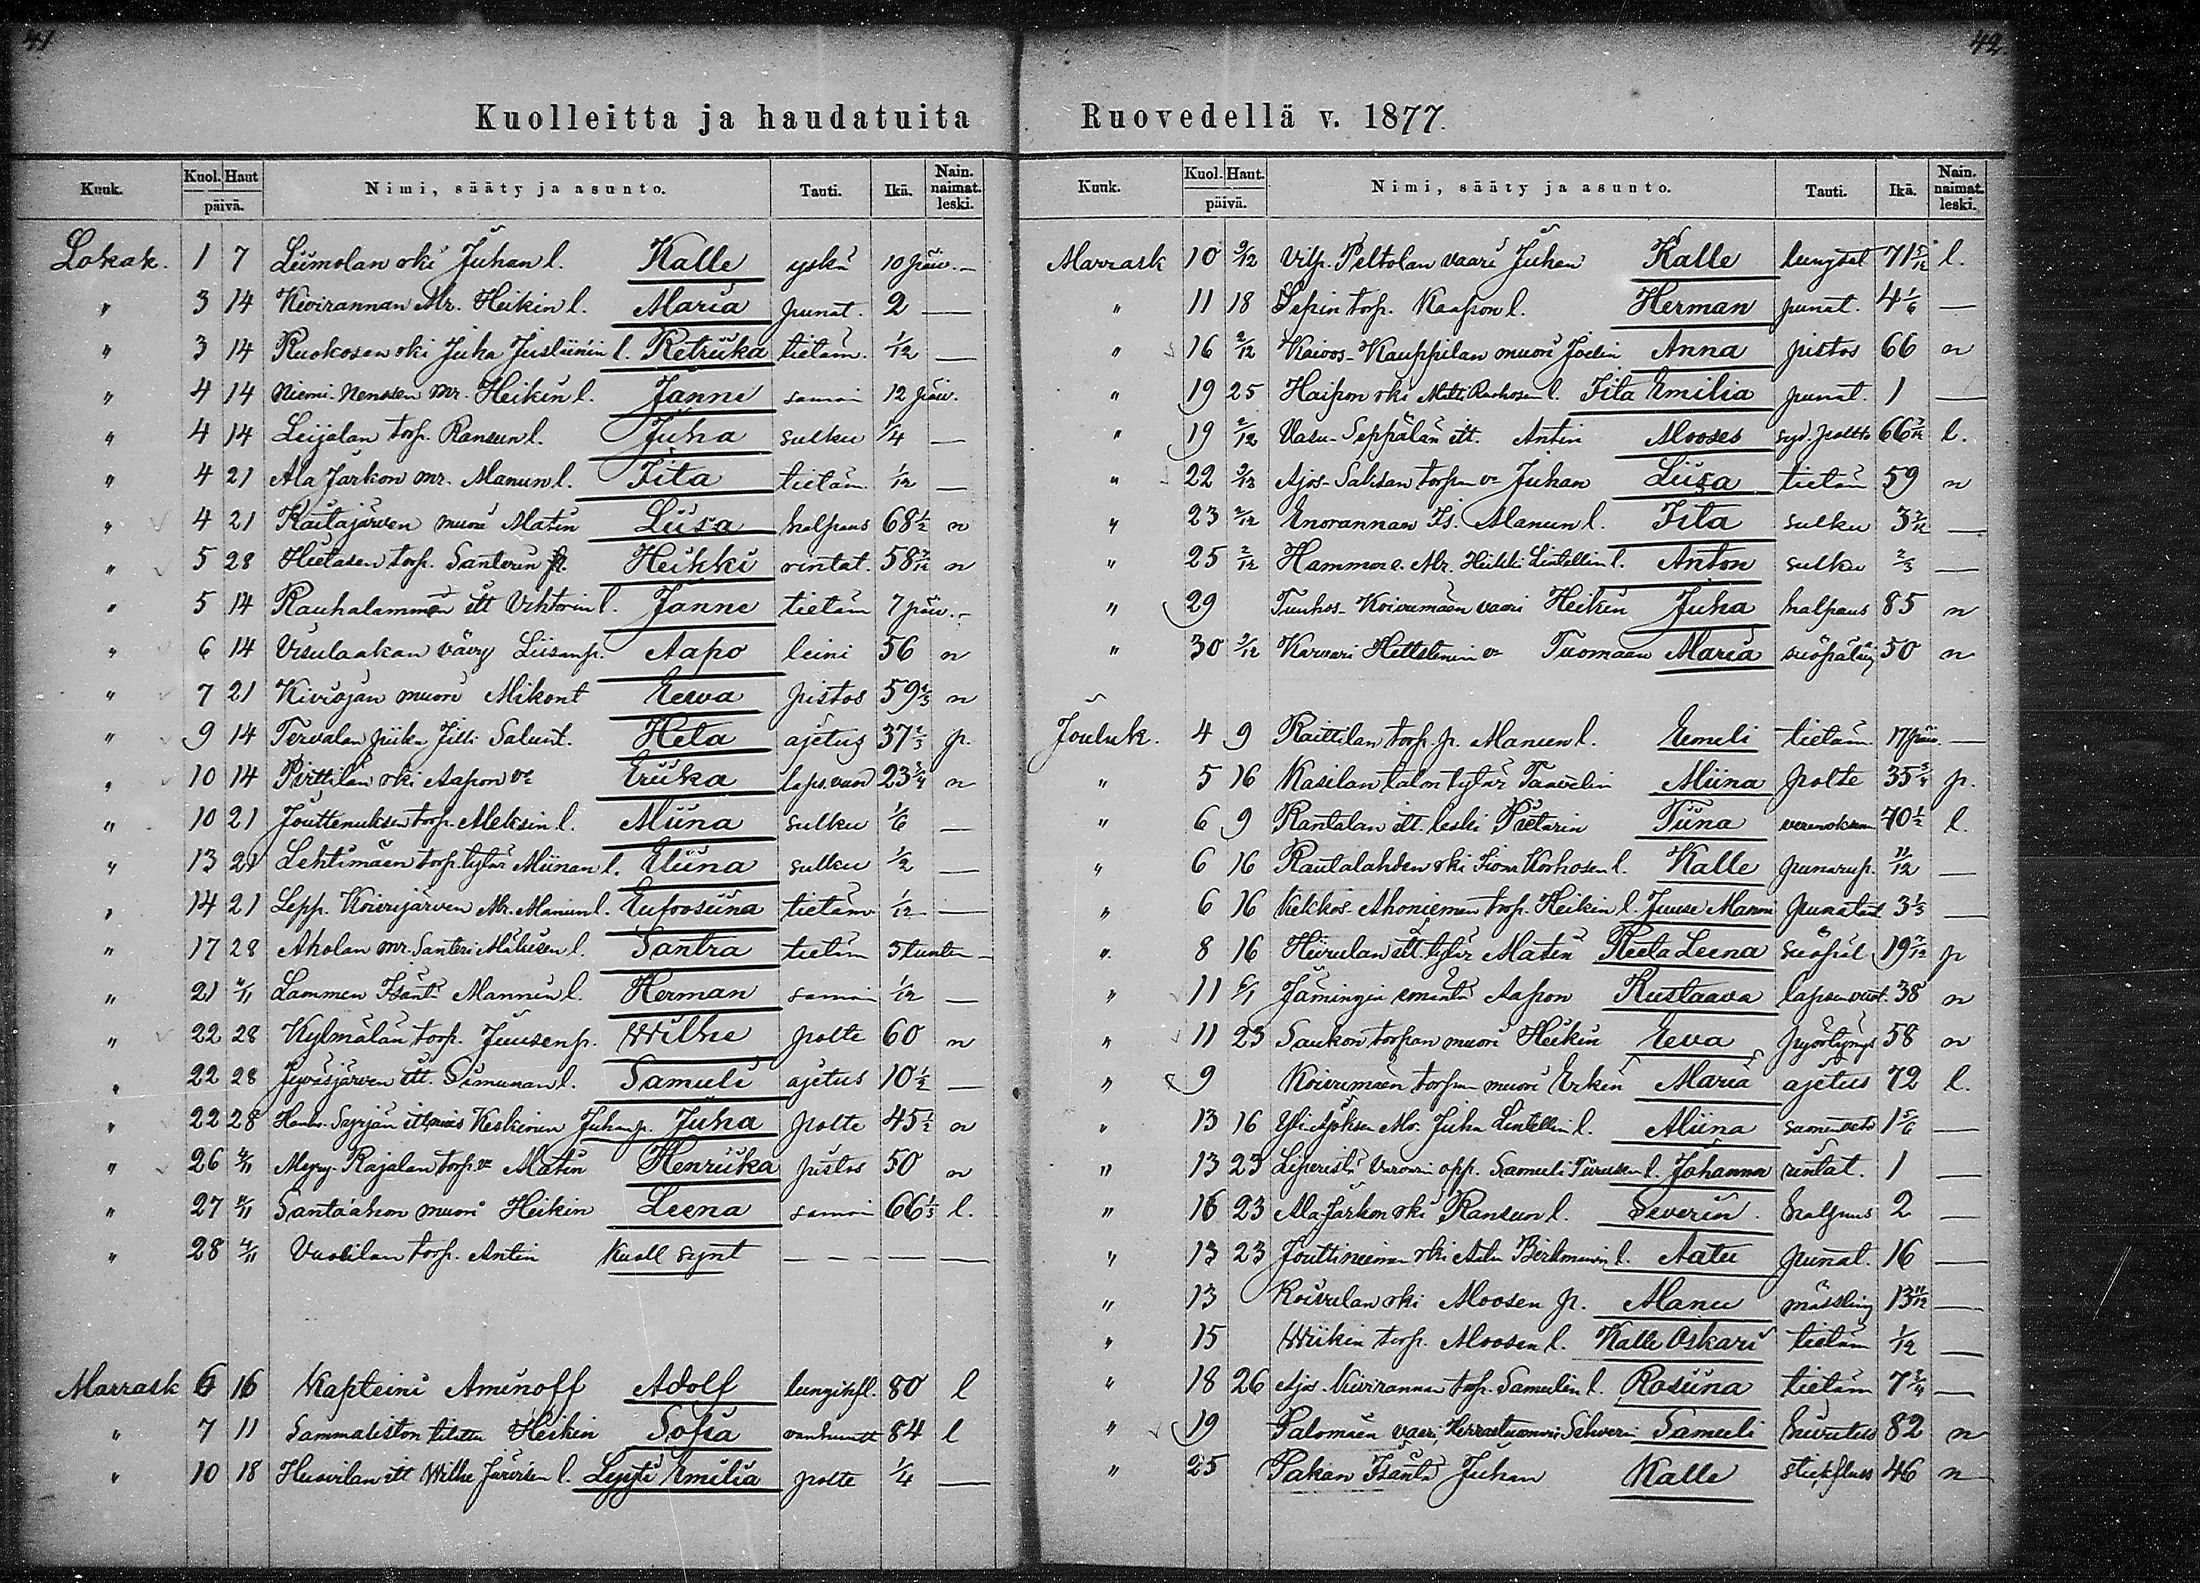 41
42
Kuolleitta ja haudatuita
Ruovedellä v. 1877.
Kuuk. Kuol. Haut päivä. Nimi, sääty ja asunto. Tauti. Ikä. Nain. naimat. leski.
Lokak. 1 7 Liimolan rki Juhan l. Kalle yskä 10 päiv. —
" 3 14 Kivirannan Mr. Heikin l. Maria punat. 2 —
" 3 14 Ruokosen rki Juha Jusliinin l. Retriika tietäm. 1/12 —
" 4 14 Niemi-Nenosen mr. Heikin l. Janne samoin 12 päiv.
" 4 14 Leijalan torp. Ransun l. Juha sulku 1/4 —
" 4 21 Ala Jarkon mr. Manun l. Iita tietäm 1/12 —
" 4 21 Rautajärven muori Matin Liisa halpaus 68 1/2 n
" 5 28 Hietasen torp. Santerin p. Heikki rintat. 58 n
" 5 14 Rauhalammen itt Vihtorin l. Janne tietäm 7 päiv. -
" 6 14 Visulaakan vävy Liisan p. Aapo leini 56 n
" 7 21 Kiviojan muori Mikont Eewa pistos 59 2/3 n
" 9 14 Tervalan piika Heta ajetus 37 2/3 p.
" 10 14 Pirttilän rki Aapon vo Eriika laps.vuod 23 3/4 n
" 10 21 Jouttenuksen torp. Aleksin l. Miina sulku 1/6 —
" 13 21 Lehtimäen torp. tytär Miinan l. Eliina sulku 1/2 —
" 14 21 Lepp. Koivujärven Mr. Manun l. Eufrosiina tietäm 1/12 —
" 17 28 Aholan mr. Santeri l. Santra tietäm 3 tuntia —
" 21 4/11 Lammen Isäntä Mannun l. Herman samoin 1/12 —
" 22 28 Kylmälän torp. Juusen p. Wilhe polte 60 n
" 22 28 Jyväsjärven itt. Simunan l. Samuli ajetus 10 1/2 —
" 22 28 Syrjän Keskinen Juhan p. Juha polte 45 1/2 n
" 26 4/11 Rajalan torp. vo Matin Henriika pistos 50 n
" 27 4/11 Santaahon muori Heikin Leena samoin 66 1/3 l.
" 28 4/11 Vuolilan torp. Antin Kuoll synt — — — —
Marrask 6 16 Kapteini Aminoff Adolf lunginfl. 80 l
" 7 11 Sammaliston Heikin Sofia vanhuutt 84 l
" 10 18 Huovilan itt Wilhe Järvisen l. Lyyti Emilia polte 1/4 —
Kuuk. Kuol. Haut. päivä. Nimi, sääty ja asunto. Tauti. Ikä. Nain. naimat. leski.
Marrask 10 2/12 Vilp. Peltolan vaari Juhan Kalle lungsot 71 5/12 l.
" 11 18 Sepin torp. Kaapon l. Herman punat. 4 1/6 —
" 16 2/12 Koivos-Kauppilan muori Joelin Anna pistos 66 n
" 19 25 Haipon rki Matti l. Iita Emilia punat. 1 —
" 19 2/12 Vasu-Seppälän itt. Antin Mooses syd. poltto 66 l.
" 22 2/12 Ajos-Salisan torpan vo Juhan Liisa tietäm 59 n
" 23 2/12 Enorannan Is. Manun l. Iita sulku 3 —
" 25 2/12 Hammon e. Mr. Heikki Lintellin l. Anton sulku 2/3 —
" 29 Tuuhos-Koivumäen vaari Heikin Juha halpaus 85 n
" 30 2/12 Karvari vo Tuomaan Maria 50 n
Jouluk. 4 9 Raittilan torp. p. Manun l. Eemeli tietäm 17 päiv. —
" 5 16 Kasilan talon tytär Taavetin Miina polte 35 3/4 p.
" 6 9 Rantalan itt. leski Pietarin Tiina 70 1/2 l.
" 6 16 Rautalahden rki Korhosen l. Kalle punarup. 11/12 —
" 6 16 Kekkos-Ahoniemen torp. Heikin l. Juuse Manu punataut 3 1/3 —
" 8 16 Hiirulan itt. tytär Matin Reeta Leena 19 p
" 11 6/1 Jämingin emäntä Aapon Kustaava lapsenvuot. 38 n
" 11 23 Saukon torpan muori Heikin Eeva 58 n
" 9 Koivumäen torpan muori Erkin Maria ajetus 72 l.
" 13 16 Mr. Juha Lintellin l. Miina 1 5/6 —
" 13 23 opp. Samuli l. Johannes rintat. 1 —
" 16 23 Ala Jarkon rki Ransun l. Severin halpaus 2 —
" 13 23 Jouttiniemen rki Aatu Birkmanin l. Aatu punat. 16 —
" 13 Koivulan rki Moosen p. Manu mässling 13 11/12 —
" 15 Wiikin torp. Moosen l. Kalle Oskari tietäm 1/12 —
" 18 26 Ajos-Kivirannan torp. Samulin l. Rosiina tietäm 7 3/4 —
" 19 Salomäen vaari, Herrastuomari Samuli 82 n
" 25 Pakan Isäntä Juhan Kalle stickfluss 46 n